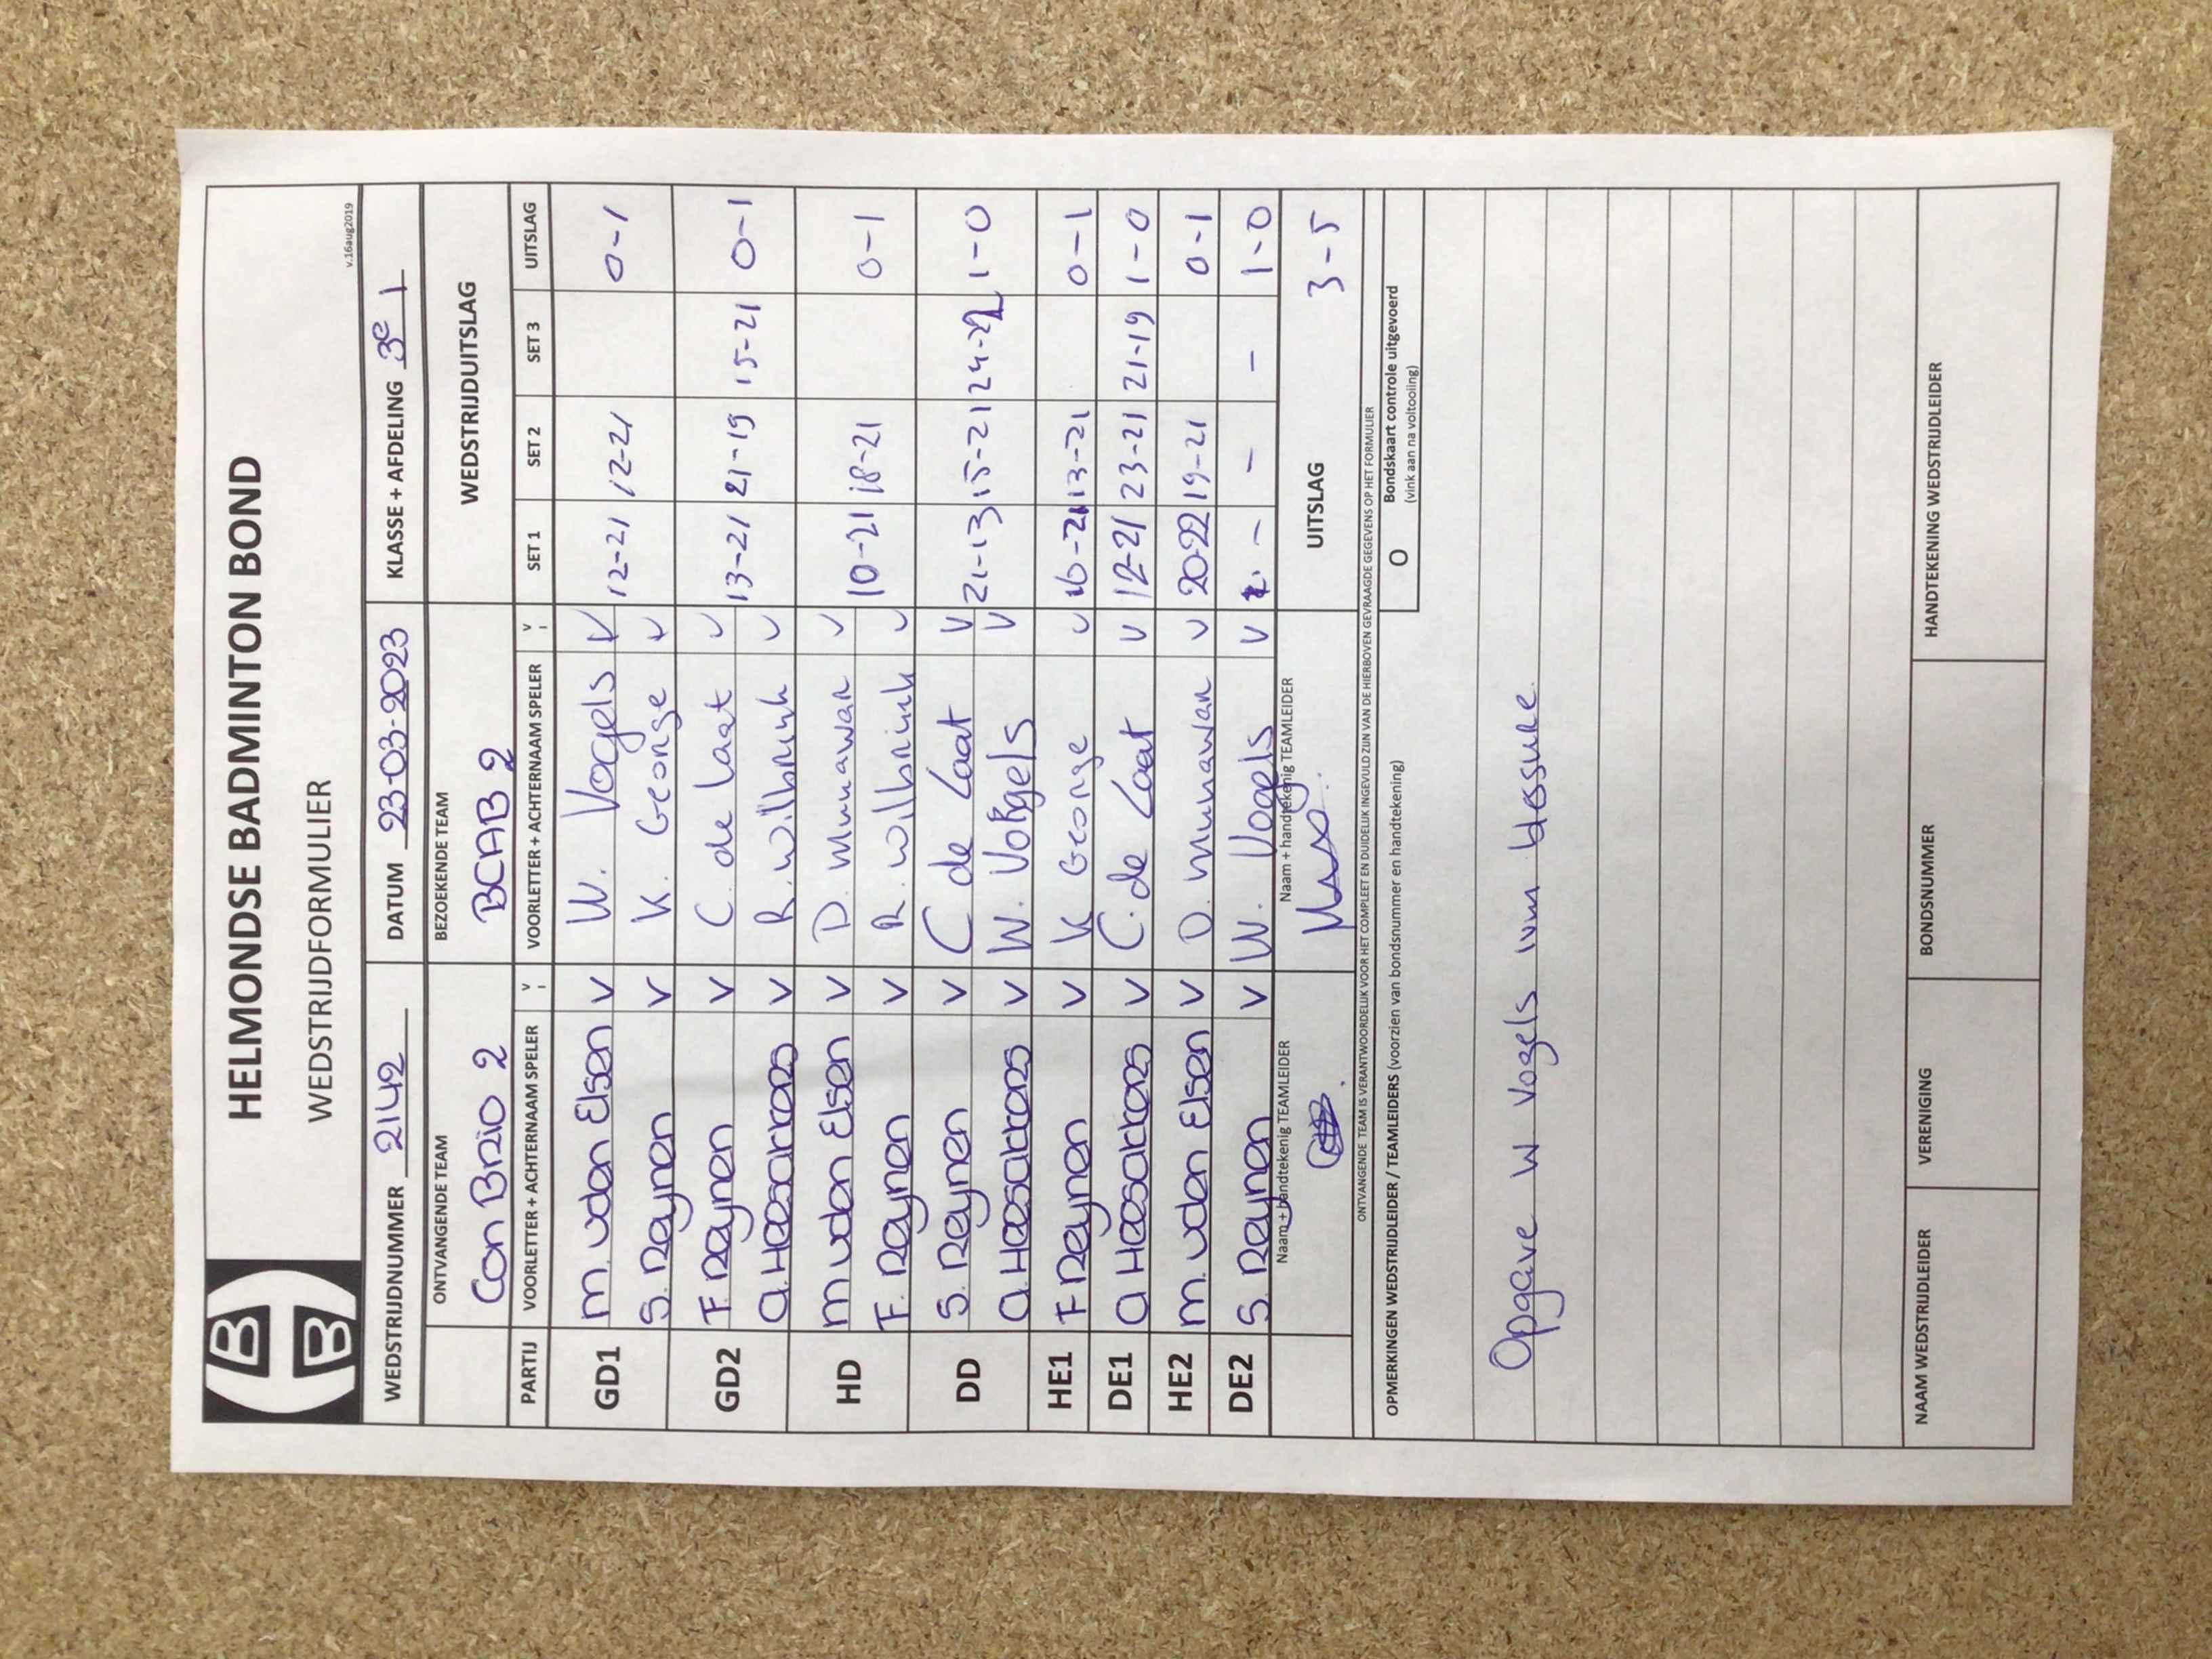 HELMONDSE BADMINTON BOND
WEDSTRIJDFORMULIER
v.16aug2019
WEDSTRIJDNUMMER 2142 DATUM 23-03-2023 KLASSE + AFDELING 3e 1
ONTVANGENDE TEAM BEZOEKENDE TEAM WEDSTRIJDUITSLAG
Con Brio 2 BCAB 2
PARTIJ VOORLETTER + ACHTERNAAM SPELER V VOORLETTER + ACHTERNAAM SPELER V SET 1 SET 2 SET 3 UITSLAG
GD1 M. vdan Elsen V W. Vogels V 12-21 12-21 0-1
S. Reynen V K. George V
GD2 F. Reynen V C. de Laat V 13-21 21-19 15-21 0-1
A. Heesakkers V R. Wilbrink V
HD M vdan Elsen V D. Munawar V 10-21 18-21 0-1
F. Reynen V R. Wilbrink V
DD S. Reynen V C de Laat V 21-13 15-21 24-22 1-0
A. Heesakkers V W. Vogels V
HE1 F Reynen V K George V 16-21 13-21 0-1
DE1 A Heesakkers V C. de Laat V 12-21 23-21 21-19 1-0
HE2 M. vdan Elsen V D. Munawar V 20-22 19-21 0-1
DE2 S. Reynen V W. Vogels V - - - 1-0
Naam + handtekenig TEAMLEIDER Naam + handtekenig TEAMLEIDER UITSLAG 3-5
ONTVANGENDE TEAM IS VERANTWOORDELIJK VOOR HET COMPLEET EN DUIDELIJK INGEVULD ZIJN VAN DE HIERBOVEN GEVRAAGDE GEGEVENS OP HET FORMULIER
OPMERKINGEN WEDSTRIJDLEIDER / TEAMLEIDERS (voorzien van bondsnummer en handtekening)
O Bondskaart controle uitgevoerd
(vink aan na voltooiing)
Opgave W Vogels ivm blessure.
NAAM WEDSTRIJDLEIDER VERENIGING BONDSNUMMER HANDTEKENING WEDSTRIJDLEIDER